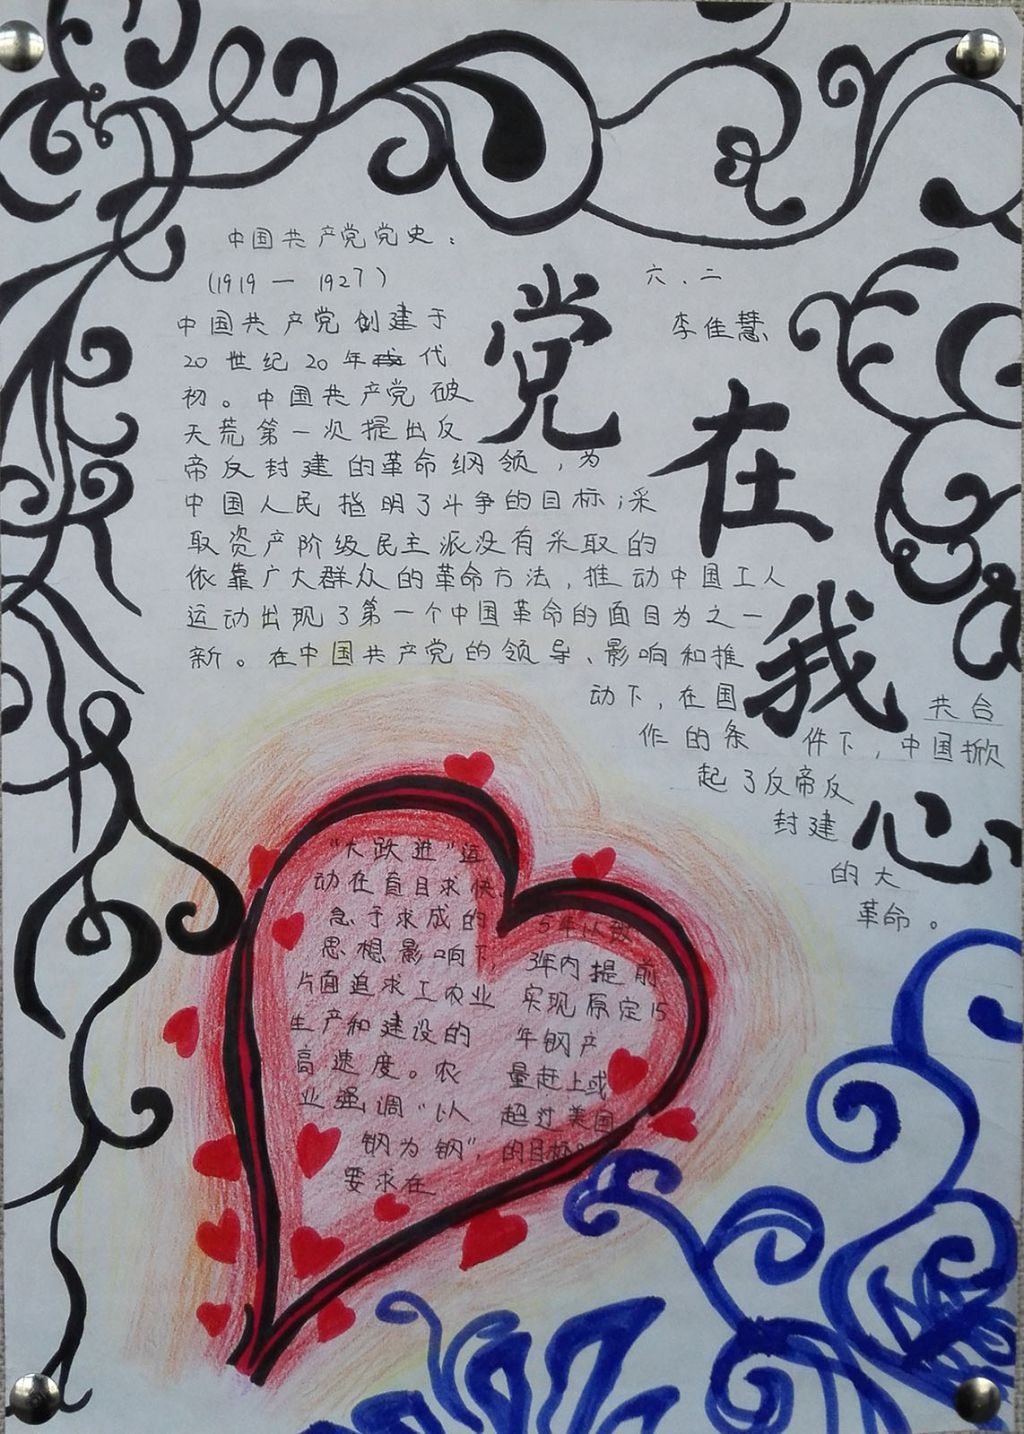 党在我心
六.二
李佳慧
中国共产党党史：
（1919 — 1927）
中国共产党创建于
20世纪20年代
初。中国共产党破
天荒第一次提出反
帝反封建的革命纲领，为
中国人民指明了斗争的目标；采
取资产阶级民主派没有采取的
依靠广大群众的革命方法，推动中国工人
运动出现了第一个中国革命的面目为之一
新。在中国共产党的领导、影响和推
动下，在国共合
作的条件下，中国掀
起了反帝反
封建
的大
革命。
“大跃进”运
动在盲目求快
急于求成的
思想影响下，
片面追求工农业
生产和建设的
高速度。农
业强调“以
钢为钢”，
要求在
5年以致
3年内提前
实现原定15
年钢产
量赶上或
超过美国
的目标。